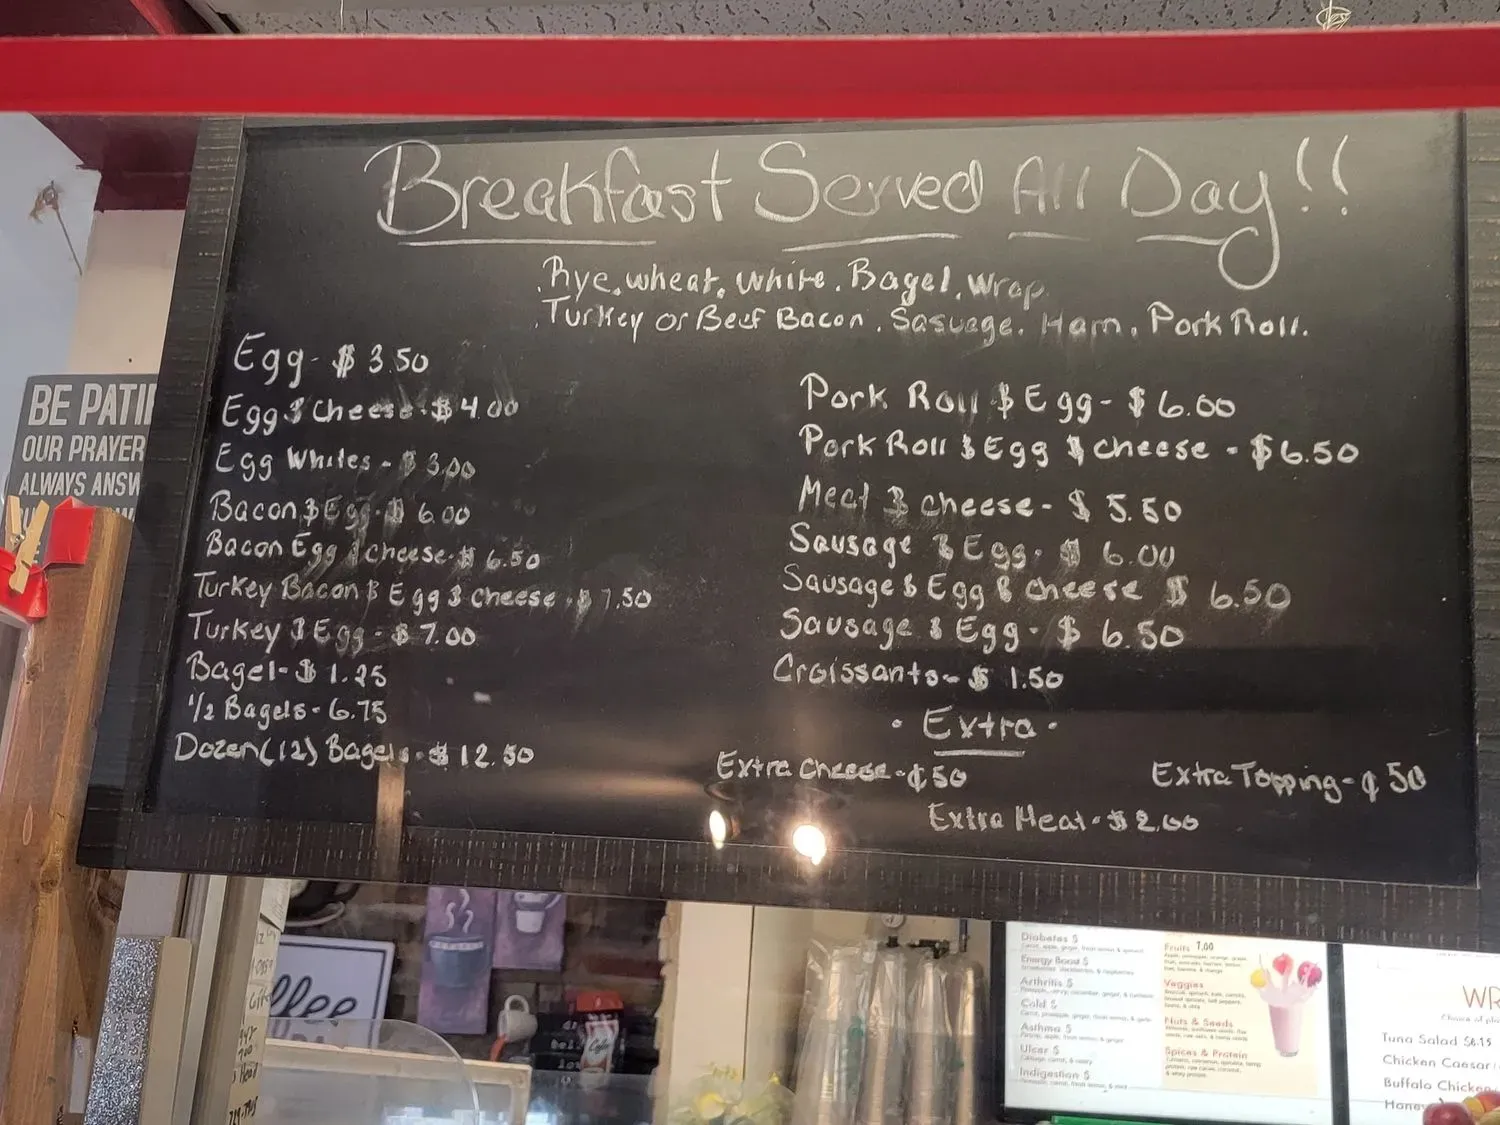 Breakfast Served All Day!!
.Rye.wheat.white.Bagel.Wrap
.Turkey or Beef Bacon.Sasuage.Ham.Pork Roll.
Egg-$3.50
Egg & Cheese-$4.00
Egg Whites-$3.00
Bacon & Egg-$6.00
Bacon Egg & cheese-$6.50
Turkey Bacon & Egg & cheese-$7.50
Turkey & Egg-$7.00
Bagel-$1.25
1/2 Bagels-6.75
Dozen(12) Bagels-$12.50
Pork Roll & Egg-$6.00
Pork Roll & Egg & cheese-$6.50
Meat & cheese-$5.50
Sausage & Egg-$6.00
Sausage & Egg & cheese $6.50
Sausage & Egg-$6.50
Croissants-$1.50
• Extra •
Extra Cheese-¢50
Extra Topping-¢50
Extra Meat-$2.00
BE PATI
OUR PRAYER
ALWAYS ANSW
ffee
Diabetes $
Energy Boost $
Arthritis $
Cold $
Asthma $
Ulcer $
Indigestion $
Fruits 7.00
Veggies
Nuts & Seeds
Spices & Protein
WR
Tuna Salad $6.15
Chicken Caesar
Buffalo Chicken
Honey